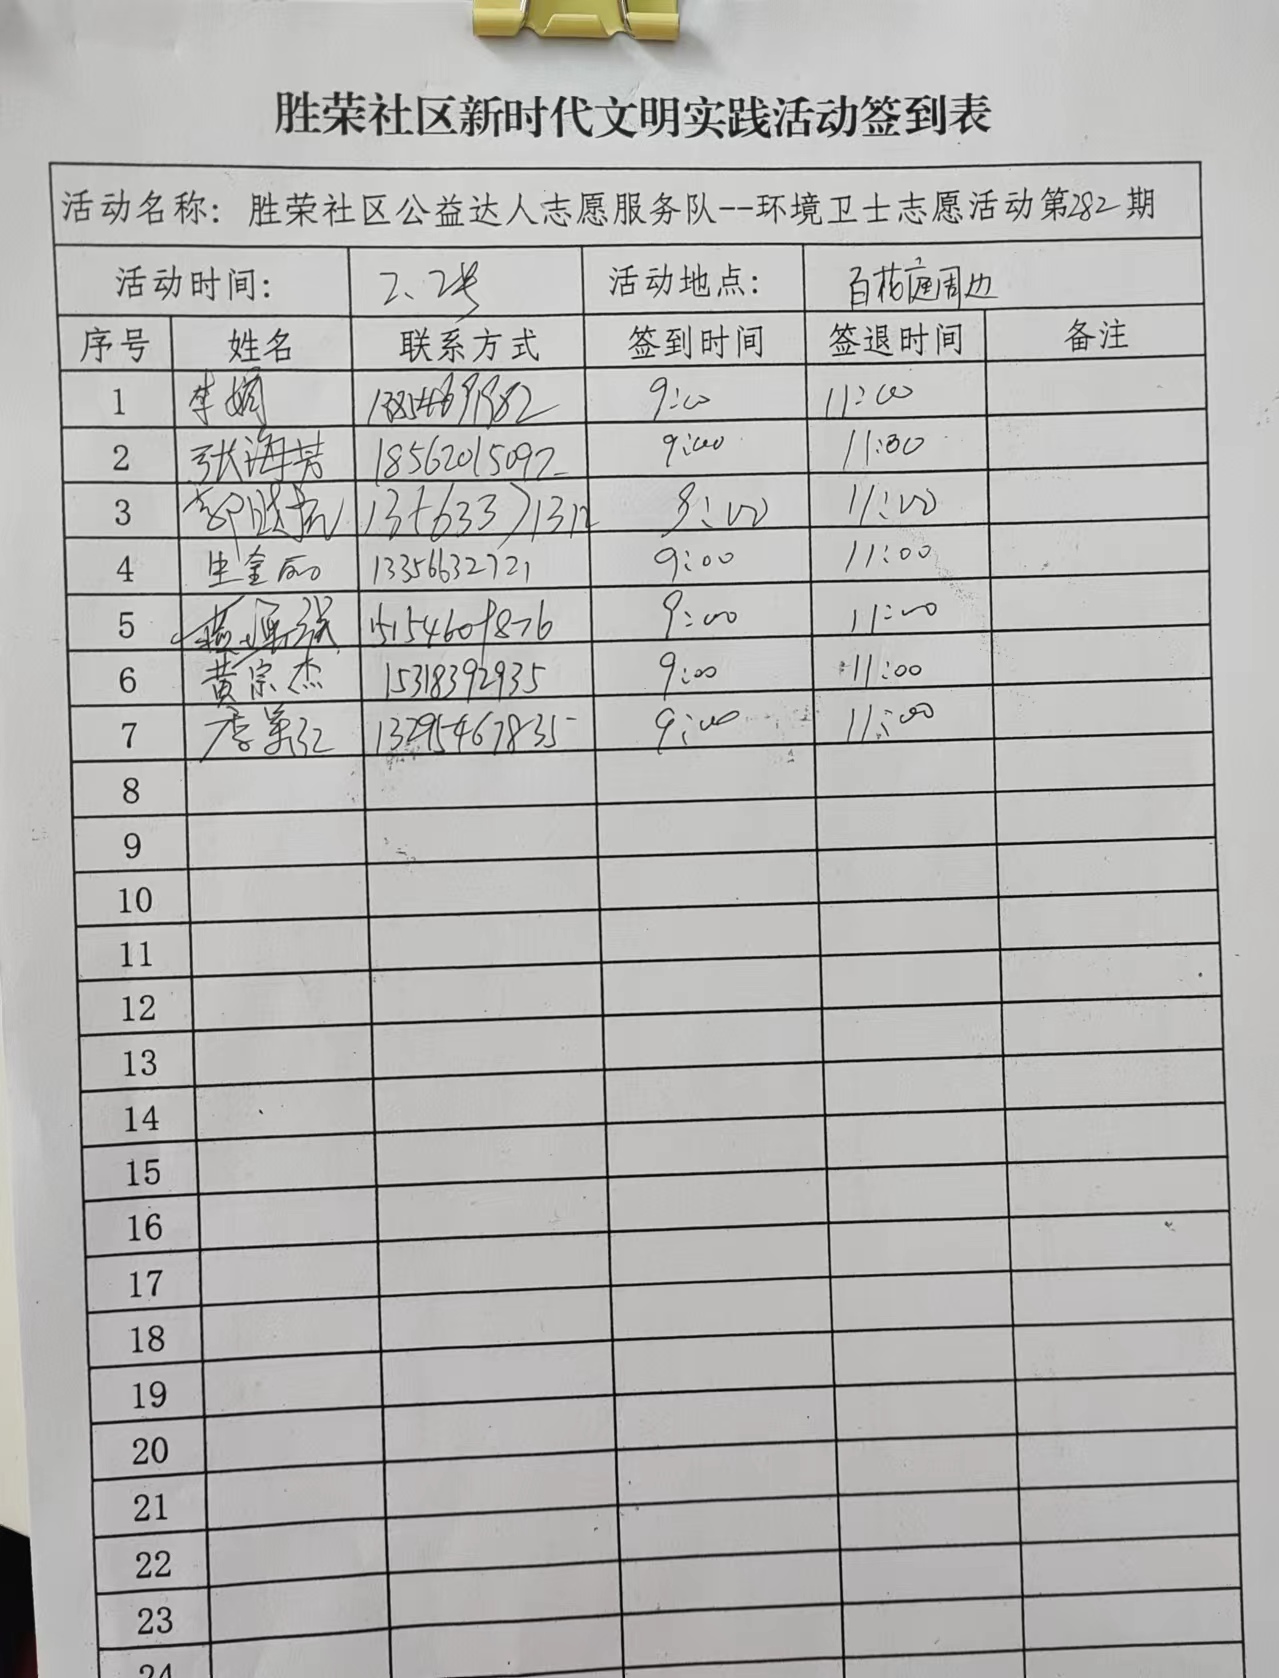 胜荣社区新时代文明实践活动签到表
活动名称：胜荣社区公益达人志愿服务队--环境卫士志愿活动第282期
活动时间： 2、2号 活动地点： 百花庭周边
序号 姓名 联系方式 签到时间 签退时间 备注
1 李娟 9:00 11:00
2 张海芳 18562015092 9:00 11:30
3 9:00 11:00
4 生金丽 13356632721 9:00 11:00
5 9:00 11:00
6 黄宗杰 15318392935 9:00 11:00
7 13295467835 9:00 11:00
8
9
10
11
12
13
14
15
16
17
18
19
20
21
22
23
24